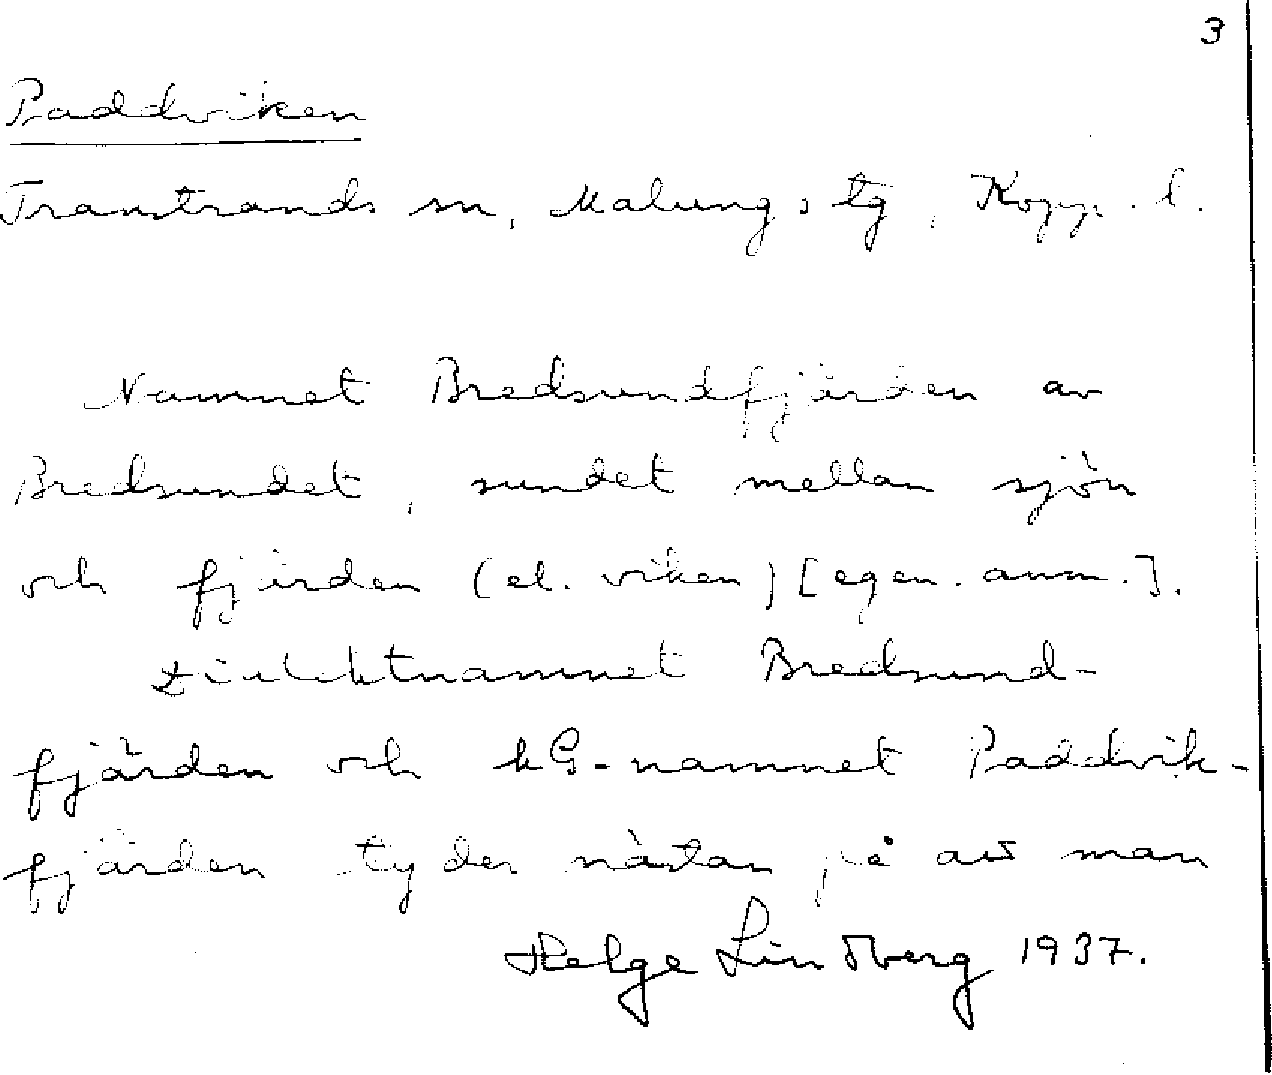 3
Paddviken
Transtrands sn, Malungs tg, Kopp. l.
Namnet Bredsundfjärden av
Bredsundet, sundet mellan sjön
och fjärden (el. viken) [egen. anm.].
Dialektnamnet Bredsund-
fjärden och kG-namnet Paddvik-
fjärden tyder nästan på att man
Helge Lindberg 1937.